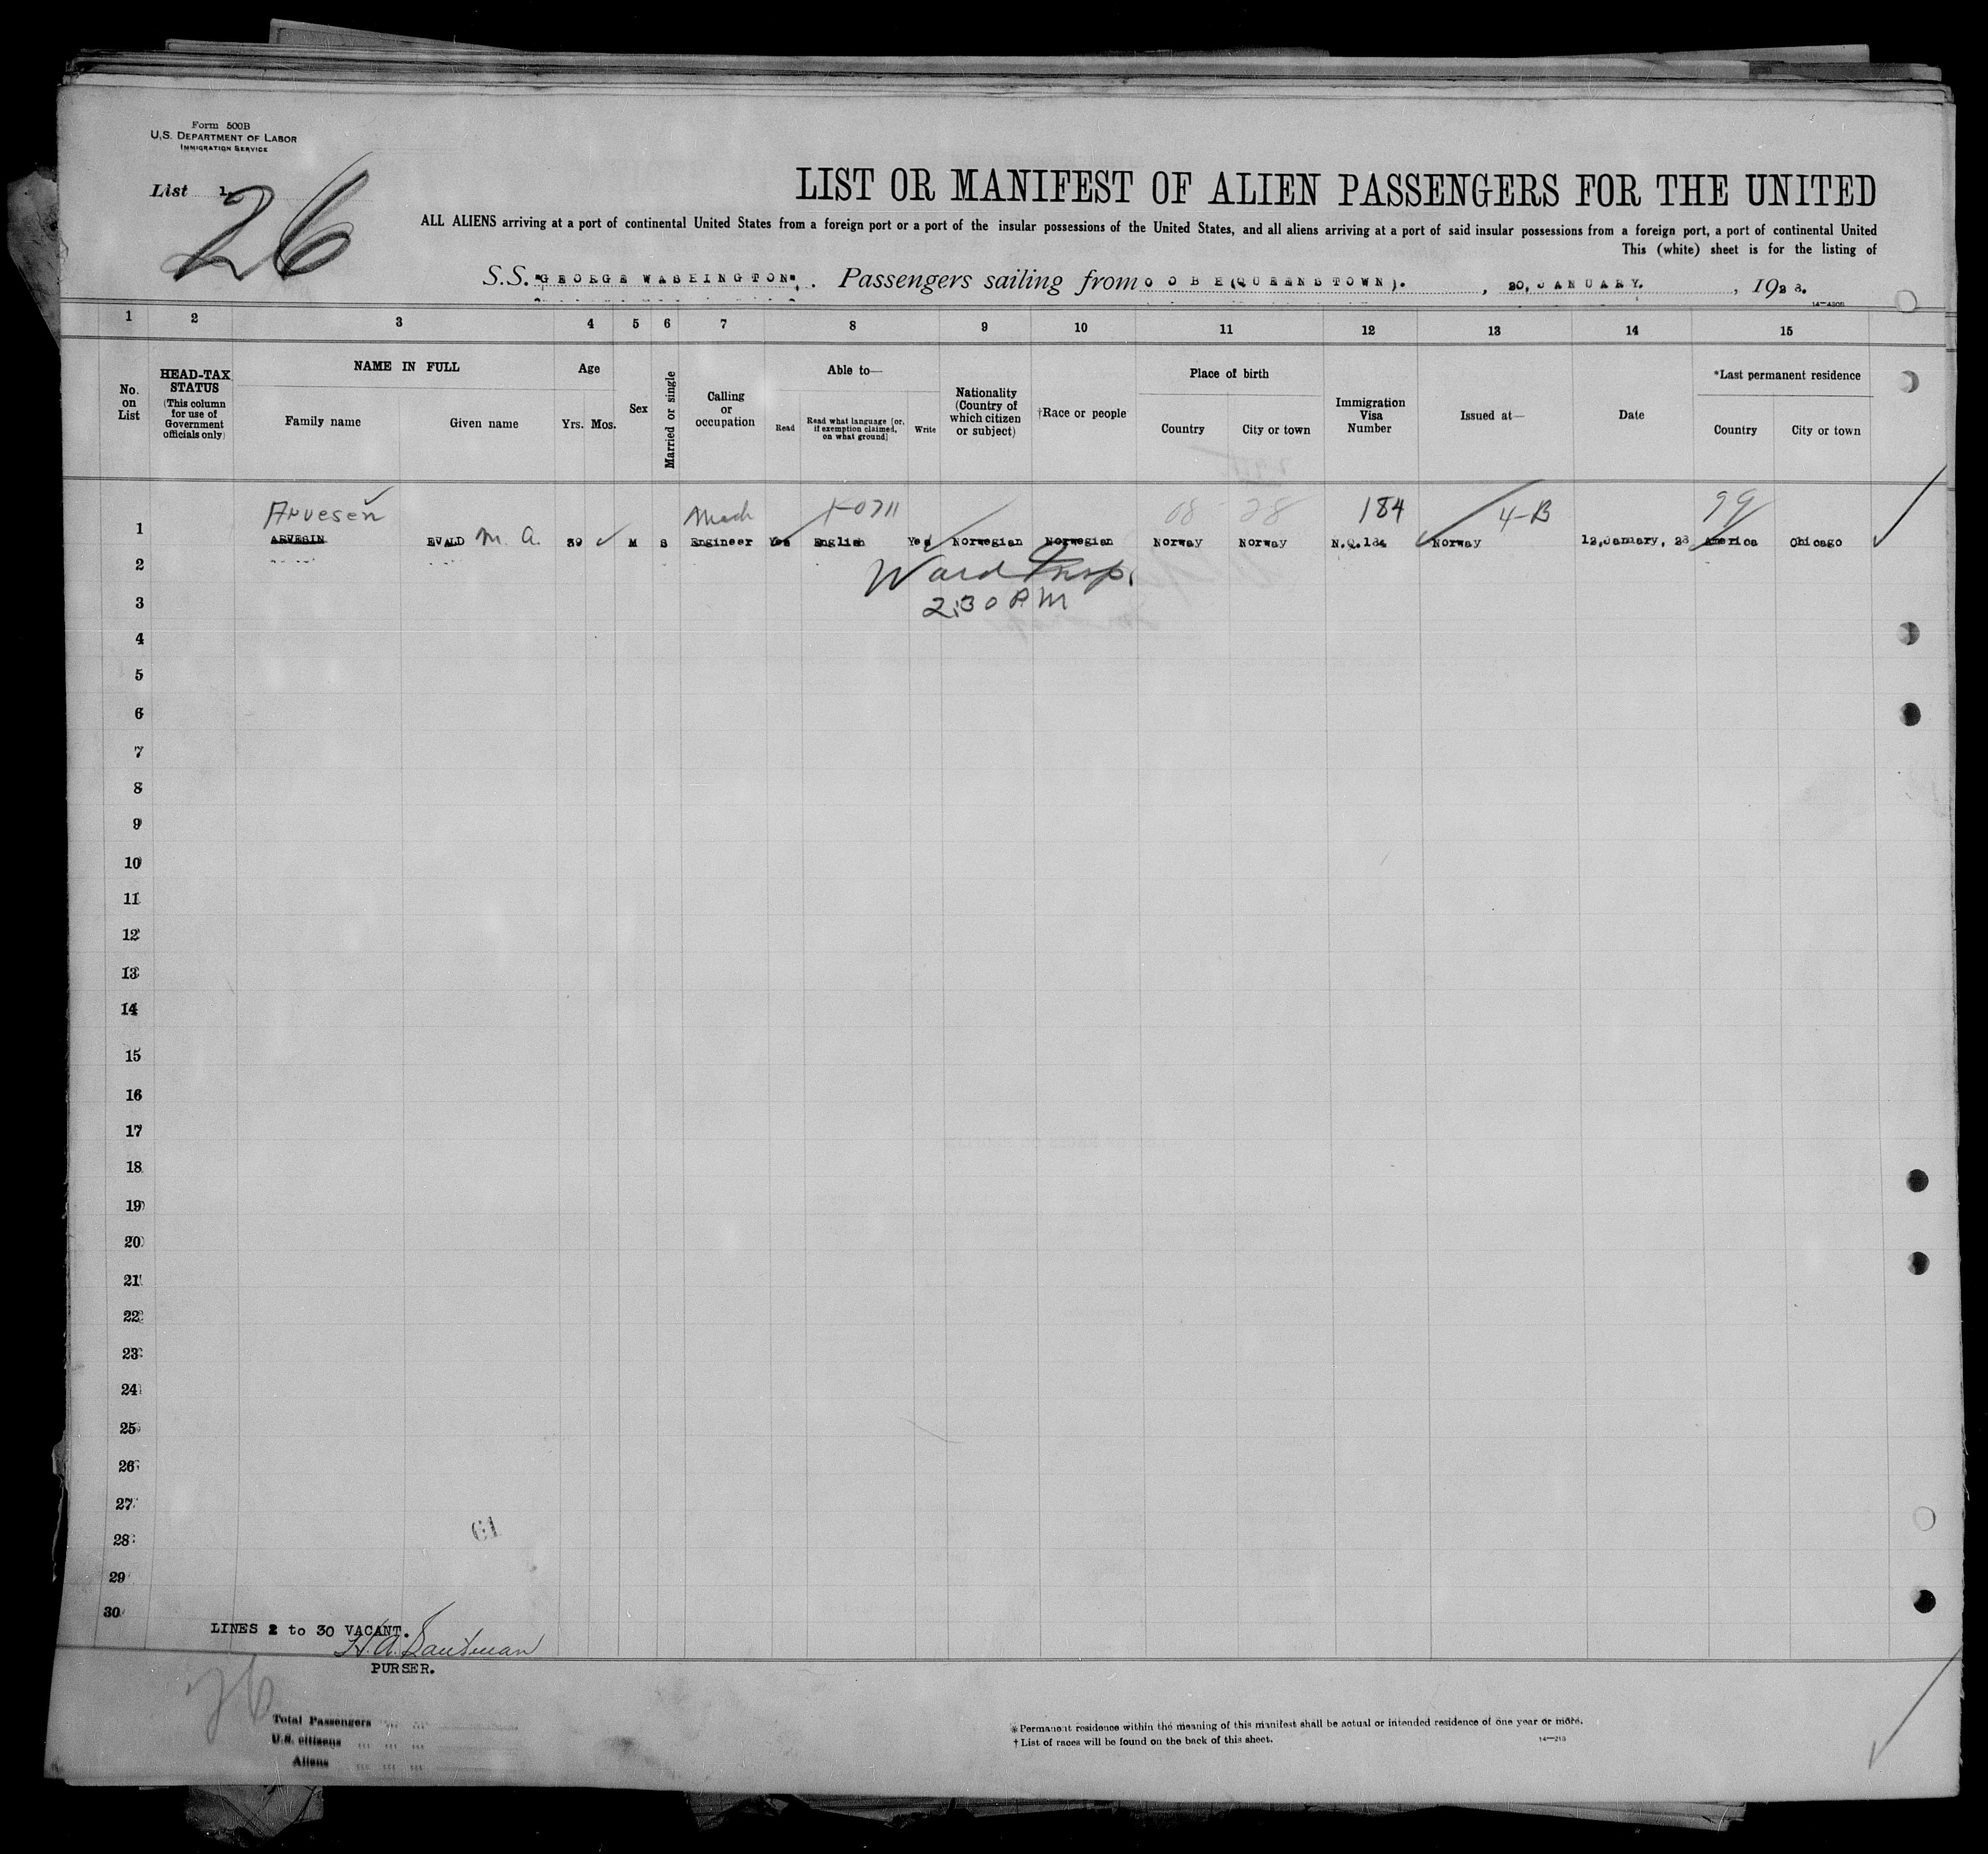 Form 500B
U.S. DEPARTMENT OF LABOR
IMMIGRATION SERVICE
List 1.
26
LIST OR MANIFEST OF ALIEN PASSENGERS FOR THE UNITED
ALL ALIENS arriving at a port of continental United States from a foreign port or a port of the insular possessions of the United States, and all aliens arriving at a port of said insular possessions from a foreign port, a port of continental United
This (white) sheet is for the listing of
S.S. "GEORGE WASHINGTON", Passengers sailing from COBH (QUEENSTOWN). , 20, JANUARY. , 1928.
14—4208
1 2 3 4 5 6 7 8 9 10 11 12 13 14 15
No. on List
HEAD-TAX STATUS (This column for use of Government officials only)
NAME IN FULL
Family name
Given name
Age
Yrs. Mos.
Sex
Married or single
Calling or occupation
Able to—
Read
Read what language [or, if exemption claimed, on what ground]
Write
Nationality (Country of which citizen or subject)
†Race or people
Place of birth
Country
City or town
Immigration Visa Number
Issued at—
Date
*Last permanent residence
Country
City or town
Arvesen Mech 08 28 184 4-B 99
1 ARVESIN EVALD M. A. 39 M S Engineer Yes English Yes Norwegian Norwegian Norway Norway N.Q.184 Norway 12,January, 28 America Chicago
2 Ward Insp.
3 2:30 P.M
4
5
6
7
8
9
10
11
12
13
14
15
16
17
18
19
20
21
22
23
24
25
26
27
28 61
29
30
LINES 2 to 30 VACANT.
PURSER.
26
Total Passengers
U.S. citizens
Aliens
*Permanent residence within the meaning of this manifest shall be actual or intended residence of one year or more.
† List of races will be found on the back of this sheet.
14—213